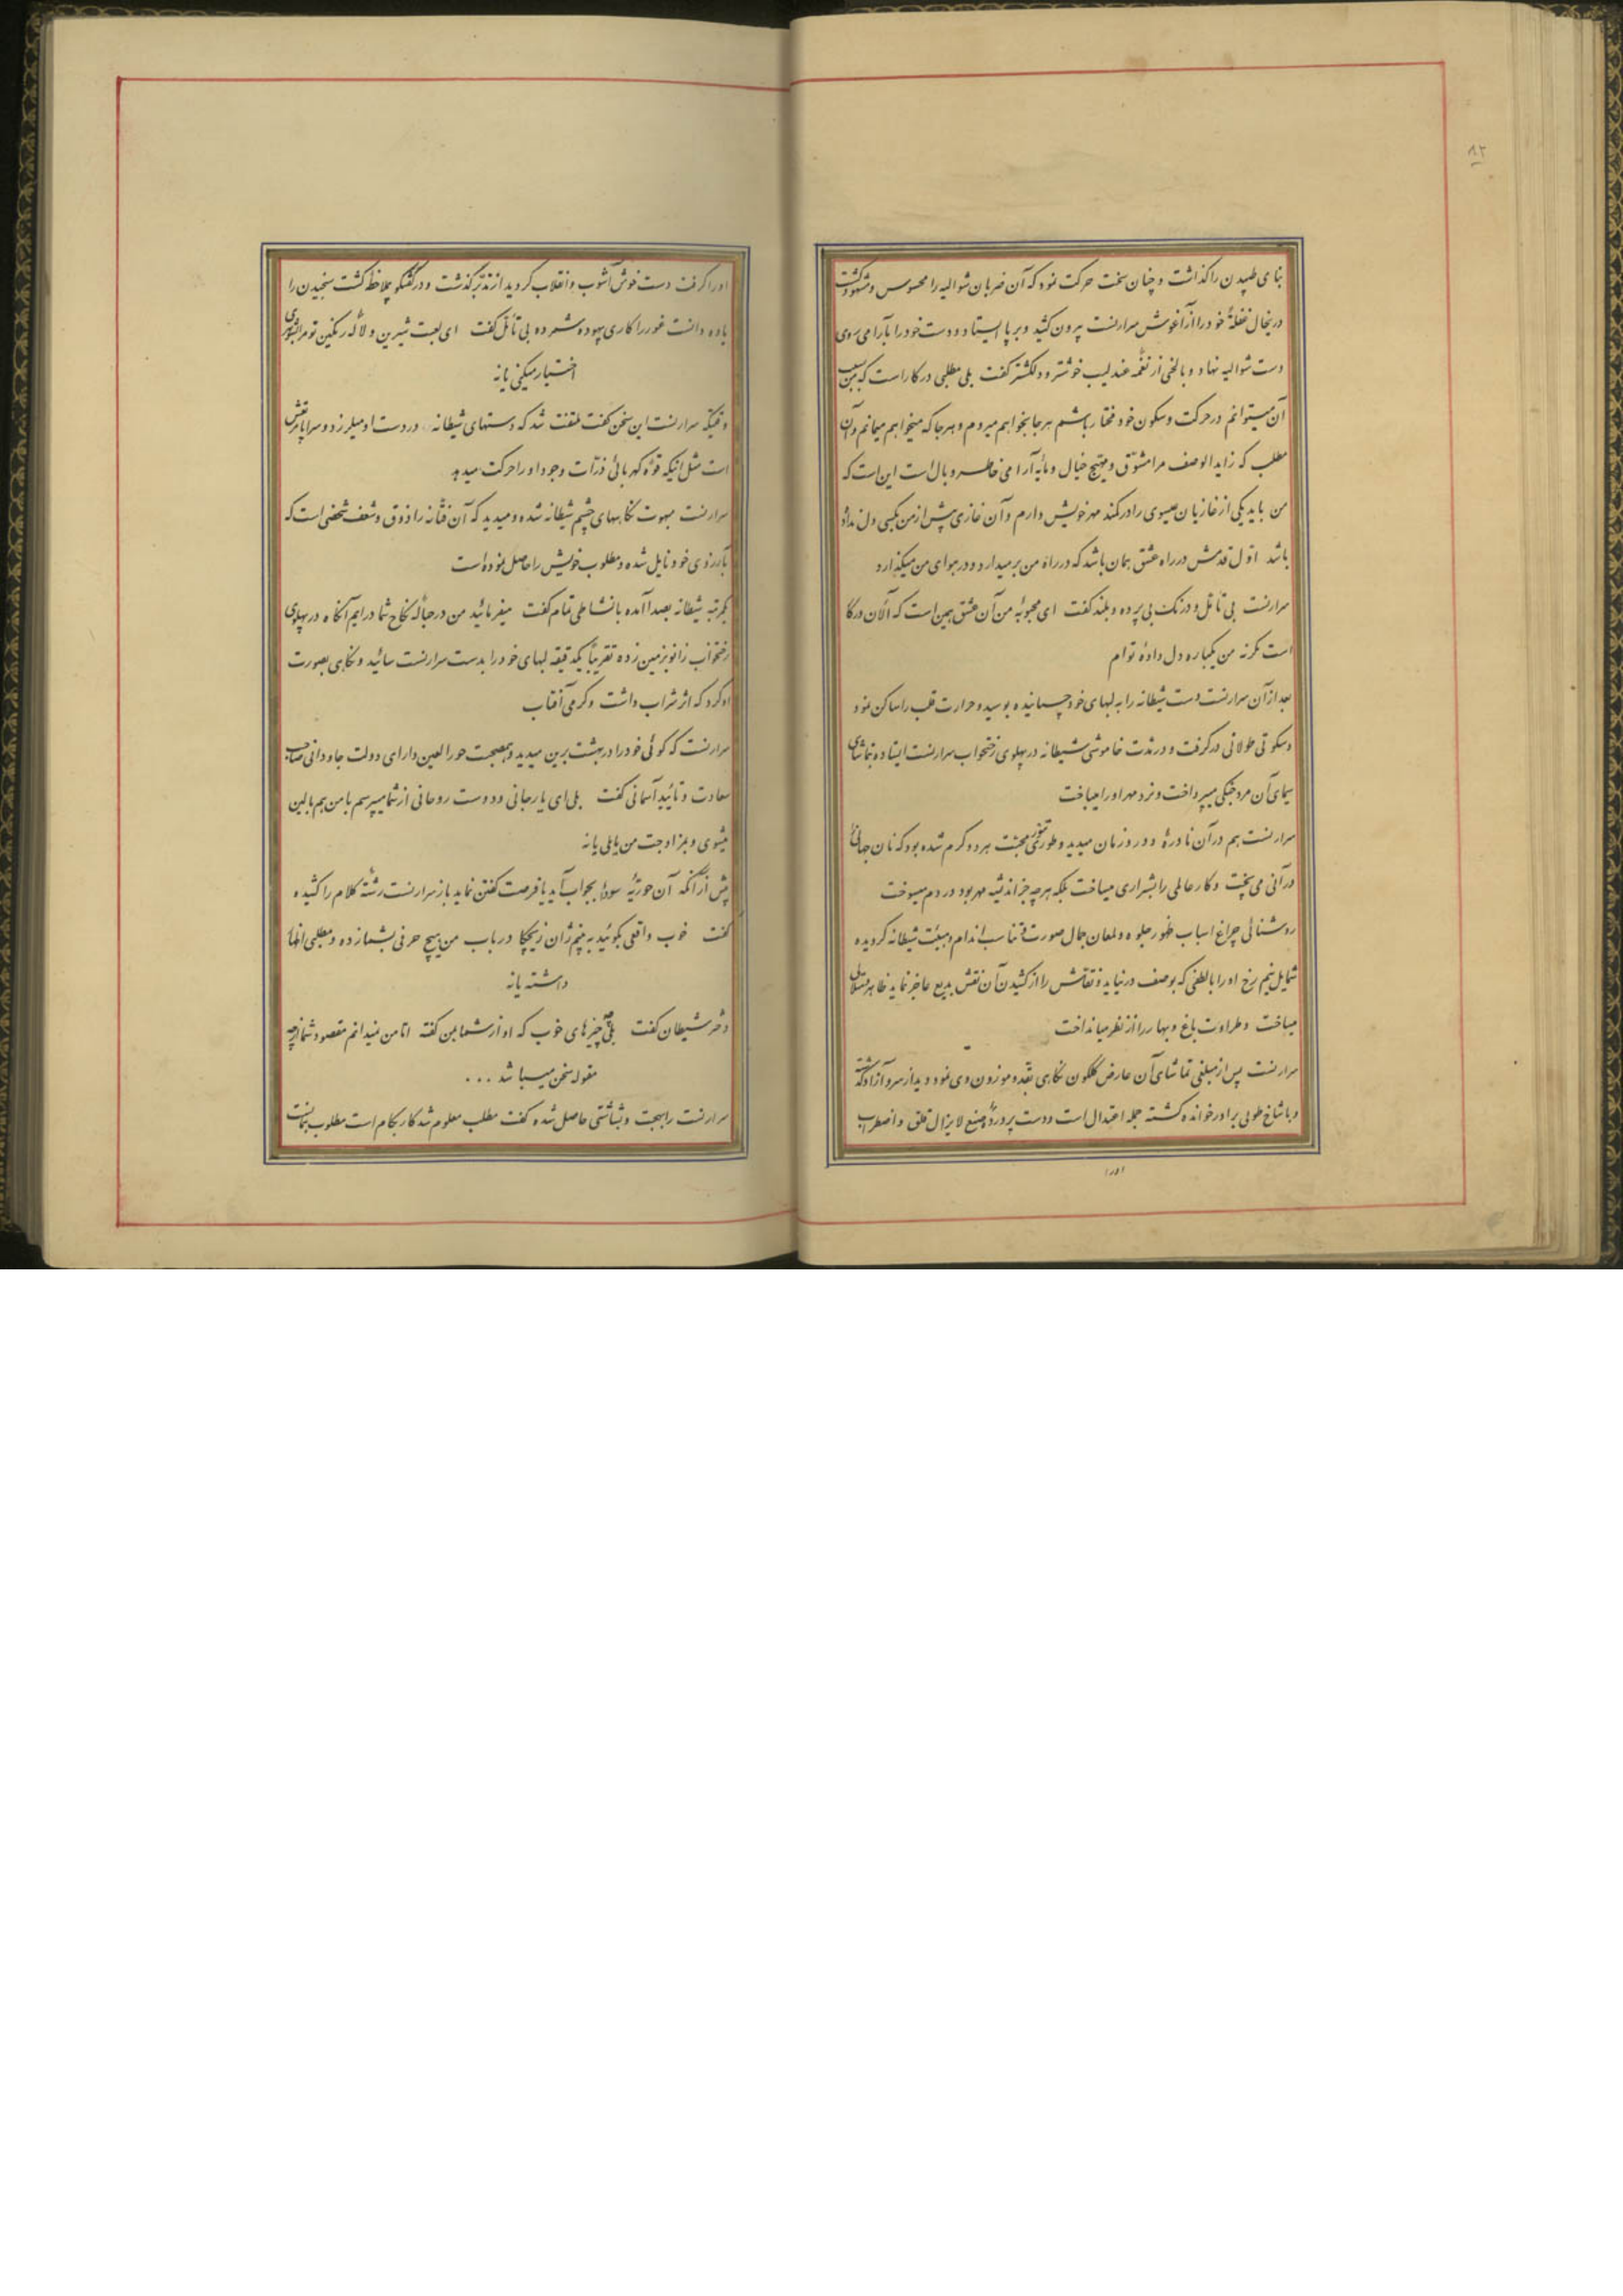 ۸۲
بنای طپیدن را گذاشت و چنان سخت حرکت نمود که آن ضربان شوالیه را محسوس و مشهود گشت
درینحال غفلةً خود را از آغوش سرارنست بیرون کشید و بر پا ایستاد و دست خود را بآرامی روی
دست شوالیه نهاد و بالحنی از نغمه عندلیب خوشتر و دلکشتر گفت بلی مطلبی در کار است که بسبب
آن میتوانم در حرکت و سکون خود مختار باشم هر جا بخواهم میروم و هر جا که میخواهم میمانم و آن
مطلب که زاید الوصف مرا مشوّق و مهیج خیال و مایه آرامی خاطر و بال است این است که
من باید یکی از غازیان عیسوی را در کمند مهر خویش دارم و آن غازی پیش از من بکسی دل نداده
باشد اوّل قدمش در راه عشق همان باشد که در راه من بر میدارد و در هوای من میگذارد
سرارنست بی تأمّل و درنک بی پرده و بلند گفت ای محبوبه من آن عشق همین است که الآن در کار
است مکر نه من یکباره دل داده توام
بعد از آن سرارنست دست شیطانه را به لبهای خود چسبانیده بوسید و حرارت قلب را ساکن نمود
و سکوتی طولانی در گرفت و در مدت خاموشی شیطانه در پهلوی رختخواب سرارنست ایستاده بتماشای
سیمای آن مرد جنگی میپرداخت و نرد مهر او را میباخت
سرارنست هم در آن نادرهٔ دور و زمان میدید و طوری تنور محبّت هر دو گرم شده بود که نان جهانی
در آنی می پخت و کار عالمی را بشراری میساخت بلکه هر چه جز اندیشه مهر بود در دم میسوخت
روشنائی چراغ اسباب ظهور جلوه و لمعان جمال صورت و تناسب اندام و هیئت شیطانه گردیده
شمایل نیم رخ او را با لطفی که بوصف در نیاید و نقاش را از کشیدن آن نقش بدیع عاجز نماید ظاهر
میساخت و طراوت باغ و بهار را از نظر میانداخت
سرارنست پس از مبلغی تماشای آن عارض گلگون نگاهی بقد موزون وی نمود و دید از سرو آزاد گذشته
و با شاخ طوبی برادر خوانده گشته جمله اعتدال است و دست پرورده صنع لا یزال قلق و اضطراب
او را گرفت دست خوش آشوب و انقلاب گردید از تدبّر گذشت و در گفتگو بملاحظه گشت سنجیدن را
یاوه دانست غور را کاری بیهوده شمرده بی تأمّل گفت ای لعبت شیرین و لاله رنگین تو مرا بشوهری
اختیار میکنی یا نه
وقتیکه سرارنست این سخن گفت ملتفت شد که دستهای شیطانه در دست او میلرزد و سراپا مرتعش
است مثل اینکه قوّه کهربائی ذرّات وجود او را حرکت میدهد
سرارنست مبهوت نگاههای چشم شیطانه شده و میدید که آن فتّانه را ذوق و شعف شخصی است که
بآرزوی خود نایل شده و مطلوب خویش را حاصل نموده است
یکمرتبه شیطانه بصدا آمده با نشاطی تمام گفت میفرمائید من در حباله نکاح شما درایم آنگاه در پهلوی
رختخواب زانو بزمین زده تقریباً یکدقیقه لبهای خود را بدست سرارنست سائید و نگاهی بصورت
او کرد که اثر شراب داشت و گرمی آفتاب
سرارنست که گوئی خود را در بهشت برین میدید و همصحبت حور العین دارای دولت جاودانی صاحب
سعادت و تأئید آسمانی گفت بلی ای یار جانی و دوست روحانی از شما میپرسم با من هم بالین
میشوی و بمزاوجت من مایلی یا نه
پیش از آنکه آن حوریّه سودا بجواب آید یا فرصت گفتن نماید باز سرارنست رشته کلام را کشیده
گفت خوب واقعی بگوئید به بینم ژان زیچکا در باب من هیچ حرفی بشما زده و مطلبی اظهار
داشته یا نه
دختر شیطان گفت بلی چیزهای خوب که او از شما بمن گفته امّا من نمیدانم مقصود شما از چه
مقوله سخن میباشد ...
سرارنست را بهجت و بشاشتی حاصل شده گفت مطلب معلوم شد کار بکام است مطلوب بدست